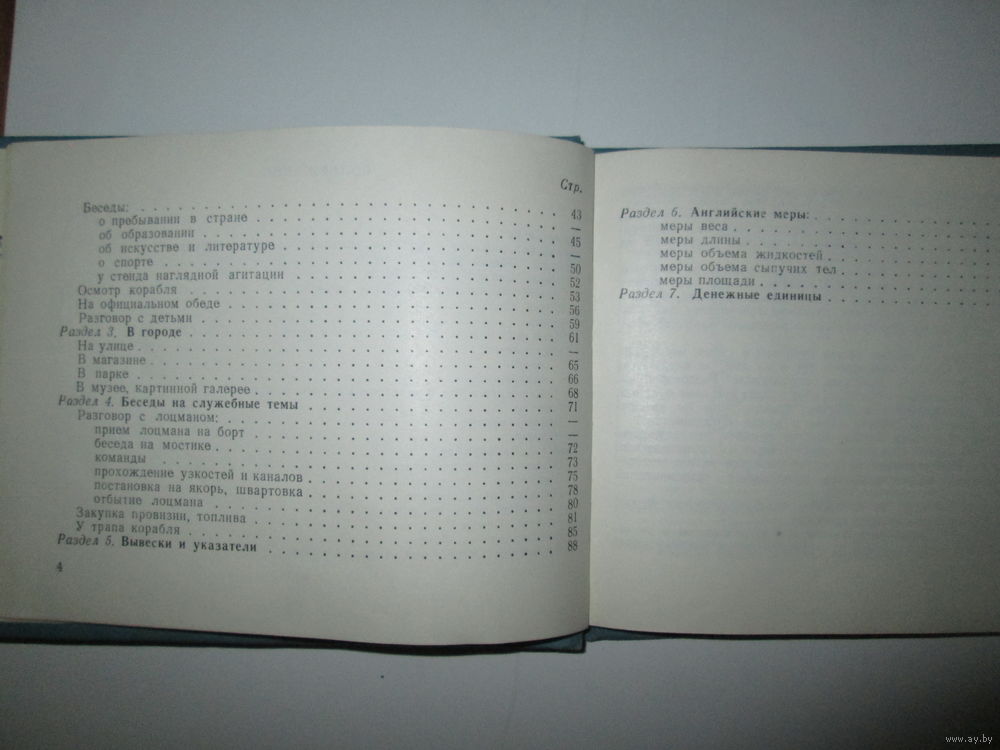 Стр.
Беседы: 43
о пребывании в стране —
об образовании 45
об искусстве и литературе —
о спорте 50
у стенда наглядной агитации 52
Осмотр корабля 53
На официальном обеде 56
Разговор с детьми 59
Раздел 3. В городе 61
На улице —
В магазине 65
В парке 66
В музее, картинной галерее 68
Раздел 4. Беседы на служебные темы 71
Разговор с лоцманом: —
прием лоцмана на борт —
беседа на мостике 72
команды 73
прохождение узкостей и каналов 75
постановка на якорь, швартовка 78
отбытие лоцмана 80
Закупка провизии, топлива 81
У трапа корабля 85
Раздел 5. Вывески и указатели 88
4
Раздел 6. Английские меры:
меры веса
меры длины
меры объема жидкостей
меры объема сыпучих тел
меры площади
Раздел 7. Денежные единицы
www.ay.by